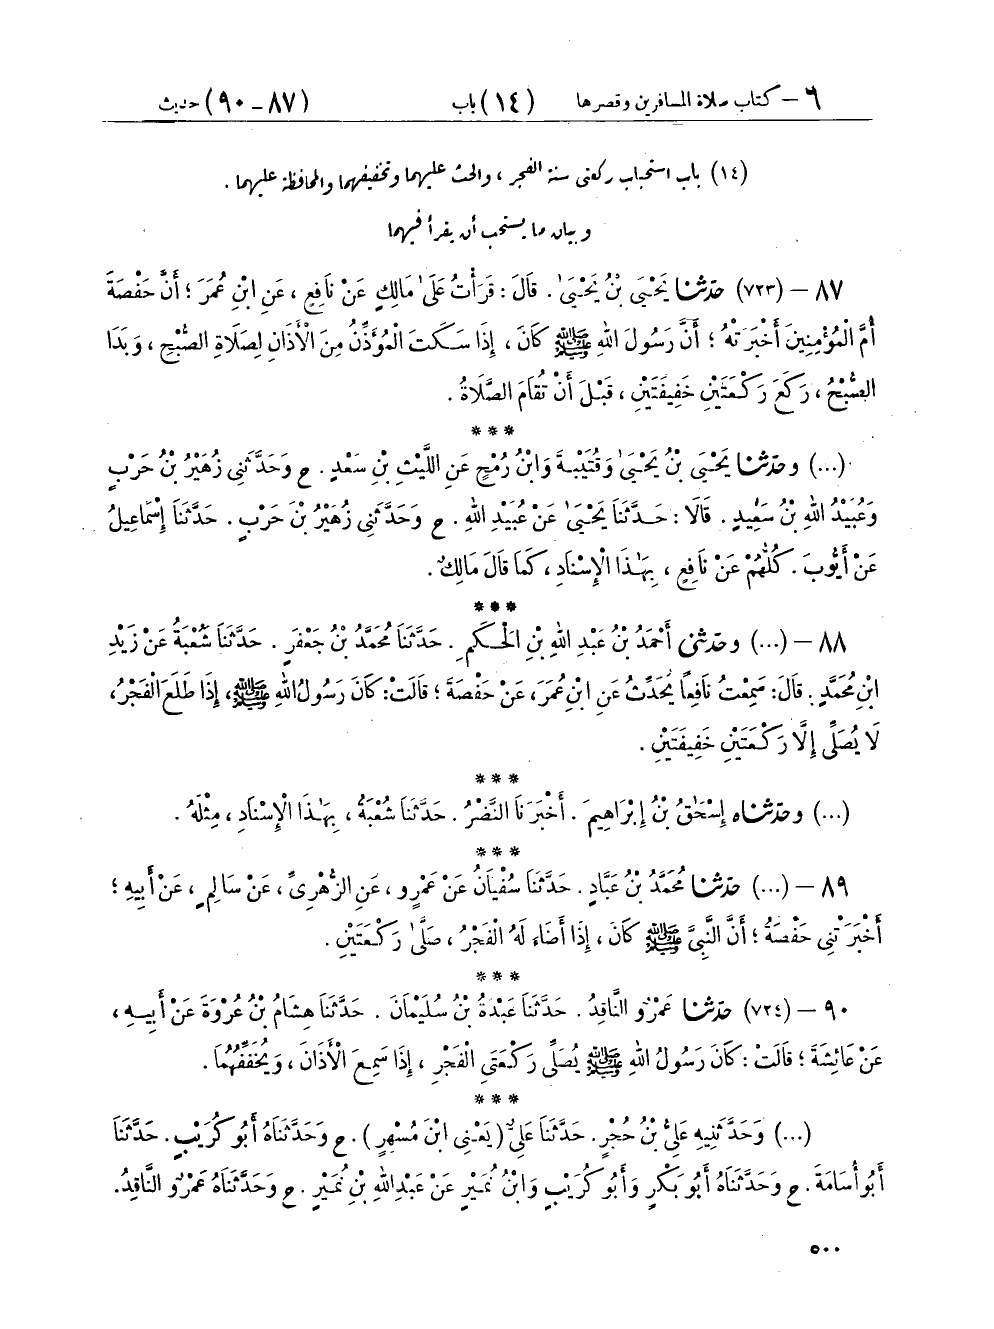 ٦ – كتاب صلاة المسافرين وقصرها (١٤) باب (٨٧-٩٠) حديث
(١٤) باب استحباب ركعتي سنة الفجر ، والحث عليهما وتخفيفهما والمحافظة عليهما .
وبيان ما يستحب أن يقرأ فيهما
٨٧ – (٧٢٣) حدثنا يَحْيَىٰ بْنُ يَحْيَىٰ . قَالَ : قَرَأْتُ عَلَىٰ مَالِكٍ عَنْ نَافِعٍ ، عَنِ ابْنِ عُمَرَ ؛ أَنَّ حَفْصَةَ
أُمَّ الْمُؤْمِنِينَ أَخْبَرَتْهُ ؛ أَنَّ رَسُولَ اللهِ ﷺ كَانَ ، إِذَا سَكَتَ الْمُؤَذِّنُ مِنَ الْأَذَانِ لِصَلَاةِ الصُّبْحِ ، وَبَدَا
الصُّبْحُ ، رَكَعَ رَكْعَتَيْنِ خَفِيفَتَيْنِ ، قَبْلَ أَنْ تُقَامَ الصَّلَاةُ .
***
(...) وحدثنا يَحْيَىٰ بْنُ يَحْيَىٰ وَقُتَيْبَةُ وَابْنُ رُمْحٍ عَنِ اللَّيْثِ بْنِ سَعْدٍ . ح وَحَدَّثَنِي زُهَيْرُ بْنُ حَرْبٍ
وَعُبَيْدُ اللهِ بْنُ سَعِيدٍ . قَالَا : حَدَّثَنَا يَحْيَىٰ عَنْ عُبَيْدِ اللهِ . ح وَحَدَّثَنِي زُهَيْرُ بْنُ حَرْبٍ . حَدَّثَنَا إِسْمَاعِيلُ
عَنْ أَيُّوبَ . كُلُّهُمْ عَنْ نَافِعٍ ، بِهَٰذَا الْإِسْنَادِ ، كَمَا قَالَ مَالِكٌ .
***
٨٨ – (...) وحدثني أَحْمَدُ بْنُ عَبْدِ اللهِ بْنِ الْحَكَمِ . حَدَّثَنَا مُحَمَّدُ بْنُ جَعْفَرٍ . حَدَّثَنَا شُعْبَةُ عَنْ زَيْدِ
ابْنِ مُحَمَّدٍ . قَالَ : سَمِعْتُ نَافِعاً يُحَدِّثُ عَنِ ابْنِ عُمَرَ ، عَنْ حَفْصَةَ ؛ قَالَتْ : كَانَ رَسُولُ اللهِ ﷺ ، إِذَا طَلَعَ الْفَجْرُ ،
لَا يُصَلِّي إِلَّا رَكْعَتَيْنِ خَفِيفَتَيْنِ .
***
(...) وحدثناه إِسْحَٰقُ بْنُ إِبْرَاهِيمَ . أَخْبَرَنَا النَّضْرُ . حَدَّثَنَا شُعْبَةُ ، بِهَٰذَا الْإِسْنَادِ ، مِثْلَهُ .
***
٨٩ – (...) حدثنا مُحَمَّدُ بْنُ عَبَّادٍ . حَدَّثَنَا سُفْيَانُ عَنْ عَمْرٍو ، عَنِ الزُّهْرِيِّ ، عَنْ سَالِمٍ ، عَنْ أَبِيهِ ؛
أَخْبَرَتْنِي حَفْصَةُ ؛ أَنَّ النَّبِيَّ ﷺ كَانَ ، إِذَا أَضَاءَ لَهُ الْفَجْرُ ، صَلَّىٰ رَكْعَتَيْنِ .
***
٩٠ – (٧٢٤) حدثنا عَمْرٌو النَّاقِدُ . حَدَّثَنَا عَبْدَةُ بْنُ سُلَيْمَانَ . حَدَّثَنَا هِشَامُ بْنُ عُرْوَةَ عَنْ أَبِيهِ ،
عَنْ عَائِشَةَ ؛ قَالَتْ : كَانَ رَسُولُ اللهِ ﷺ يُصَلِّي رَكْعَتَيِ الْفَجْرِ ، إِذَا سَمِعَ الْأَذَانَ ، وَيُخَفِّفُهُمَا .
***
(...) وَحَدَّثَنِيهِ عَلِيُّ بْنُ حُجْرٍ . حَدَّثَنَا عَلِيٌّ (يَعْنِي ابْنَ مُسْهِرٍ) . ح وَحَدَّثَنَاهُ أَبُو كُرَيْبٍ . حَدَّثَنَا
أَبُو أُسَامَةَ . ح وَحَدَّثَنَاهُ أَبُو بَكْرٍ وَأَبُو كُرَيْبٍ وَابْنُ نُمَيْرٍ عَنْ عَبْدِ اللهِ بْنِ نُمَيْرٍ . ح وَحَدَّثَنَاهُ عَمْرٌو النَّاقِدُ .
٥٠٠